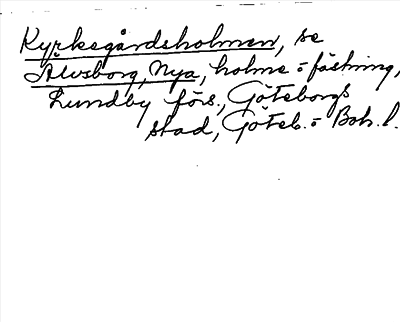 Kyrkegårdsholmen, se
Älvsborg, Nya, holme o. fästning,
Lundby förs., Göteborgs
stad, Göteb. o. Boh. l.